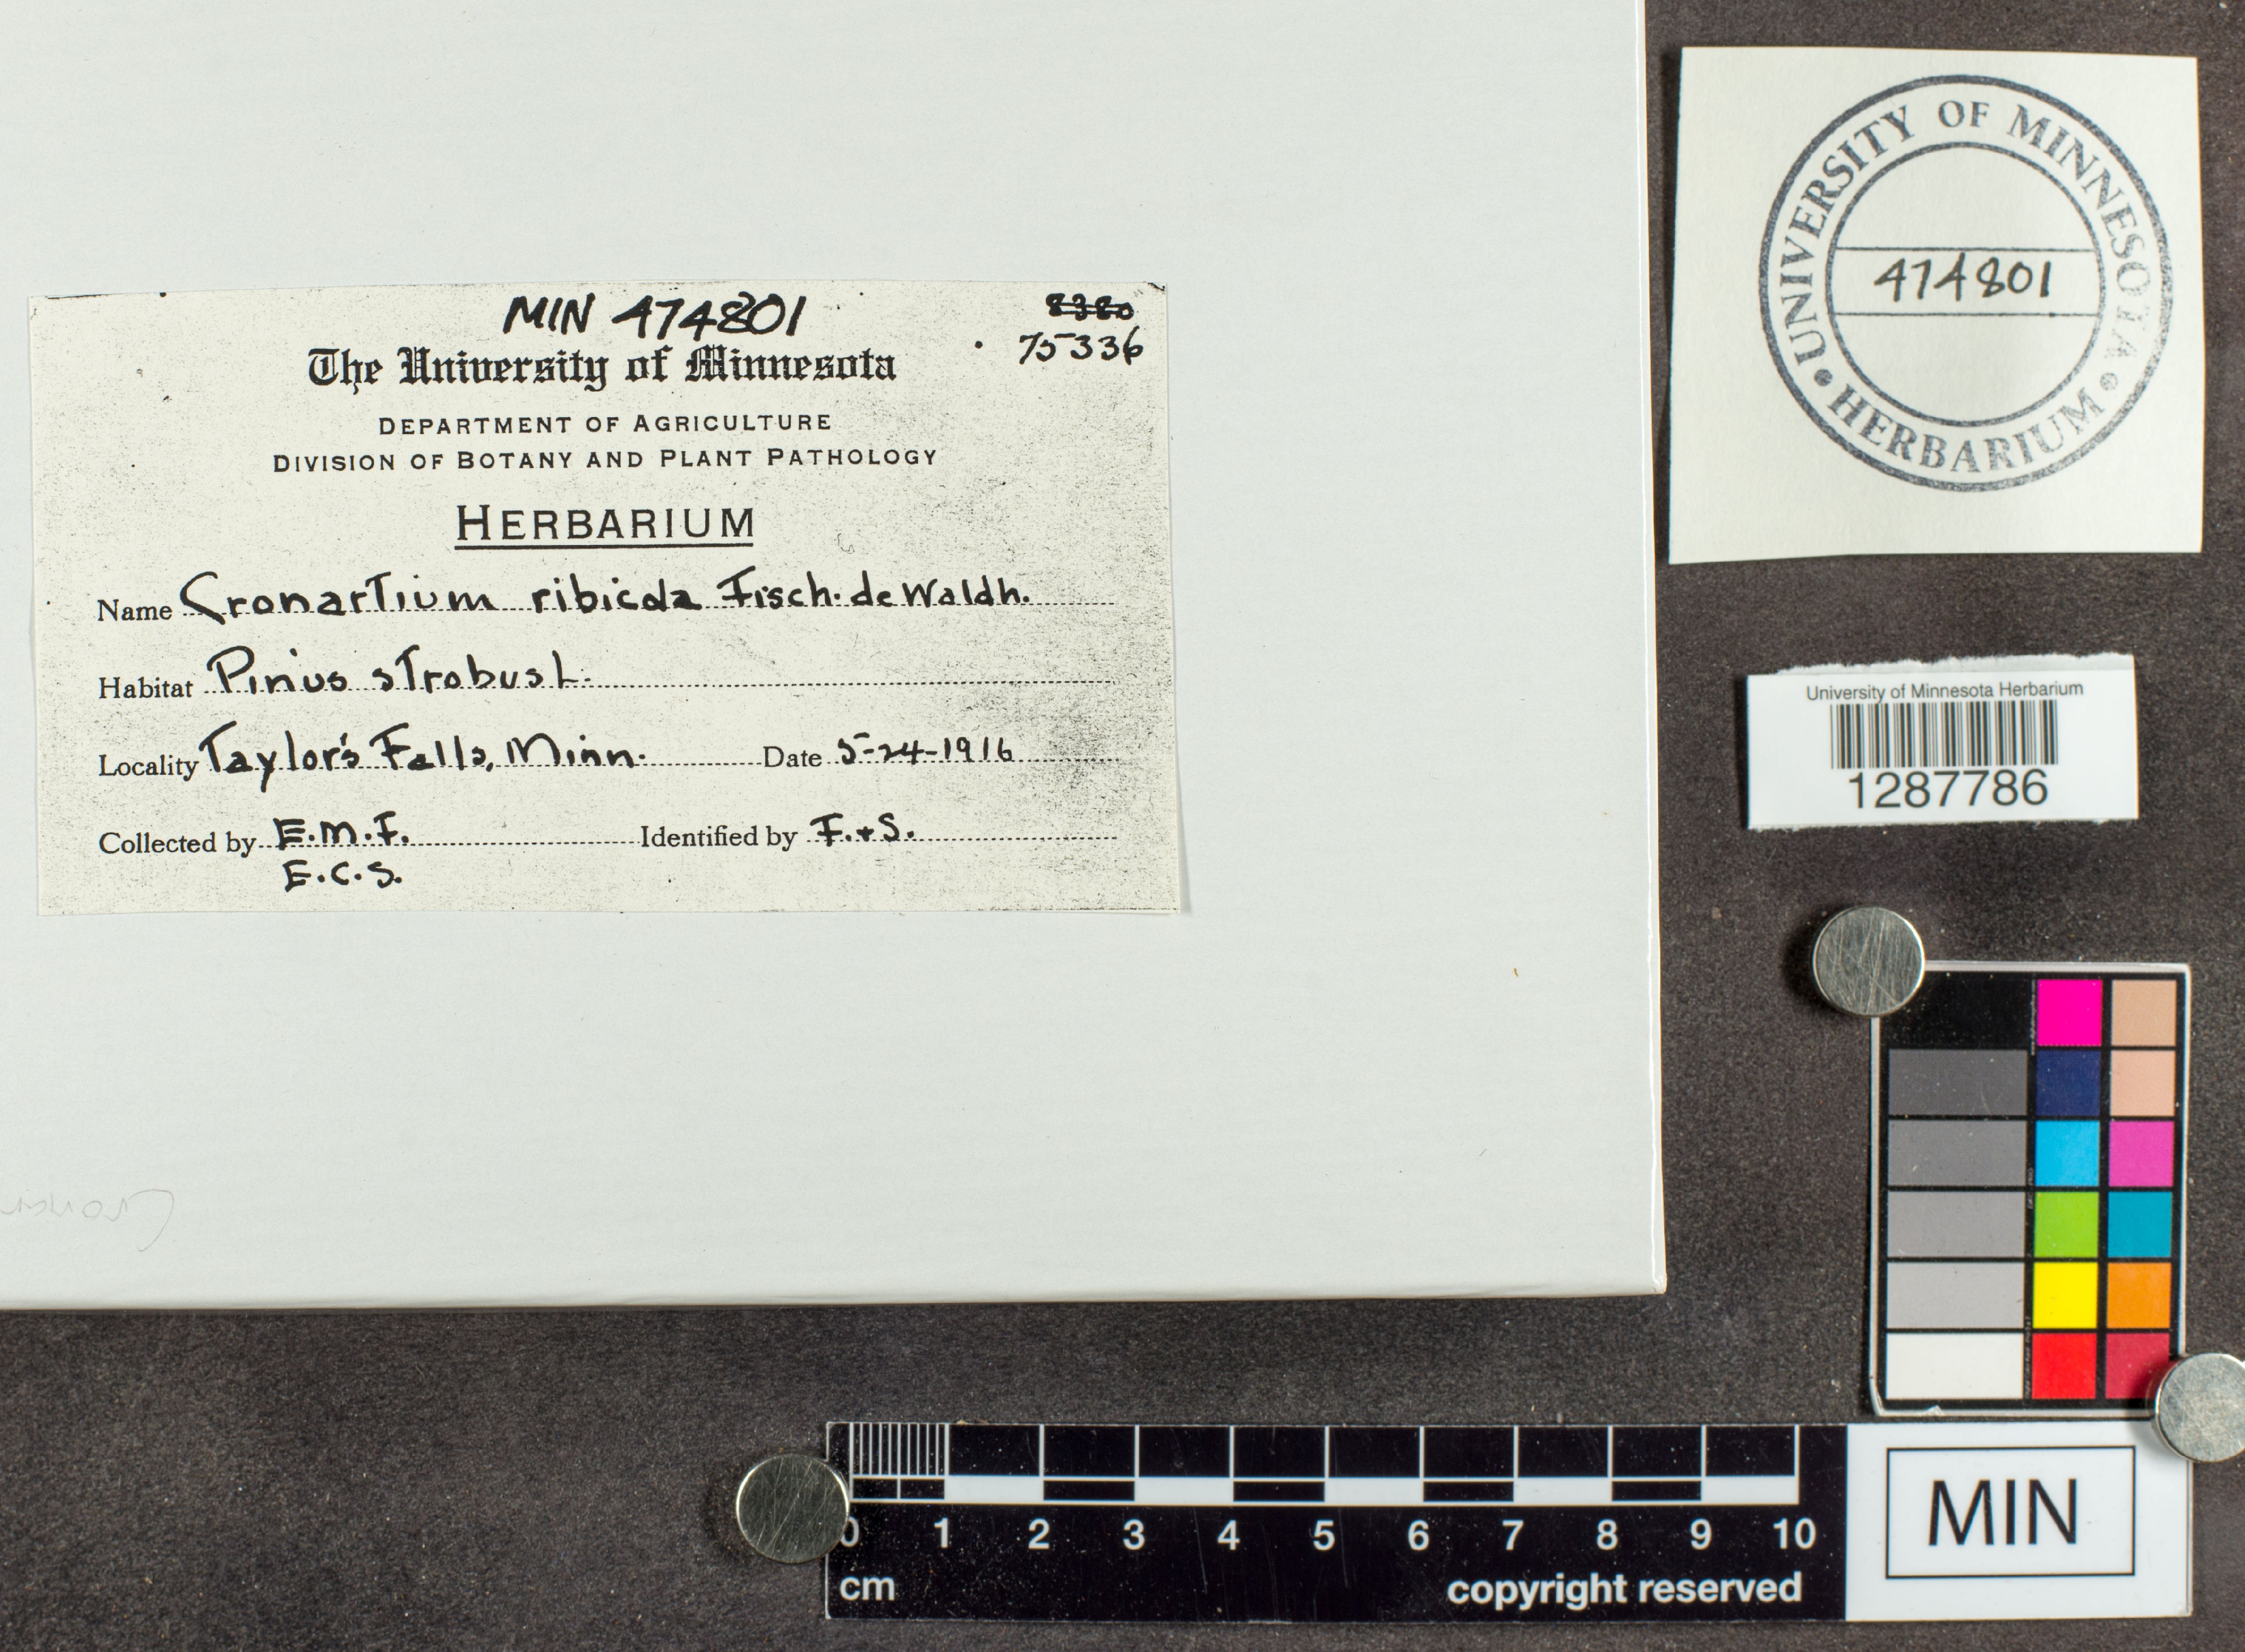 MIN 474801
8380
75336
The University of Minnesota
DEPARTMENT OF AGRICULTURE
DIVISION OF BOTANY AND PLANT PATHOLOGY
HERBARIUM
Name Cronartium ribicola Fisch. de Waldh.
Habitat Pinus strobus L.
Locality Taylor's Falls, Minn. Date 5-24-1916
Collected by E.M.F. Identified by F. + S.
E.C.S.
UNIVERSITY OF MINNESOTA
474801
HERBARIUM
University of Minnesota Herbarium
1287786
0 1 2 3 4 5 6 7 8 9 10
cm copyright reserved
MIN